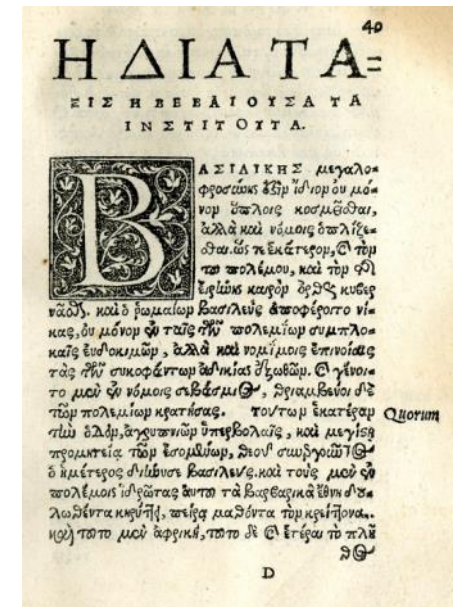 40
Η ΔΙΑΤΑ=
ΞΙΣ Η ΒΕΒΑΙΟΥΣΑ ΤΑ
ΙΝΣΤΙΤΟΥΤΑ.
ΒΑΣΙΛΙΚΗΣ μεγαλο-
φροσύνης ἐξὶν ἴδιον οὐ μό-
νον ὅπλοις κοσμεῖσθαι,
ἀλλὰ καὶ νόμοις ὁπλίζε-
σθαι. ὥς τε ἑκάτερον, καὶ τὸν
τοῦ πολέμου, καὶ τὸν τῆς
εἰρήνης καιρὸν ὀρθῶς κυβερ
νᾶσθαι. καὶ ὁ ῥωμαίων βασιλεὺς ἀποφέροιτο νί-
κας, οὐ μόνον ἐν ταῖς τῶν πολεμίων συμπλο-
καῖς εὐδοκιμῶν, ἀλλὰ καὶ νομίμοις ἐπινοίαις
τὰς τῶν συκοφάντων ἀδικίας ἐξωθῶν. καὶ γένοι-
το μὲν ἐν νόμοις σεβάσμιος, θριαμβεύοι δὲ
τῶν πολεμίων κρατήσας. τούτων ἑκατέραν
Quorum
τὴν ὁδὸν, ἀγρυπνιῶν ὑπερβολαῖς, καὶ μεγίστῃ
προμηθείᾳ τῶν ἐσομένων, θεοῦ συνεργοῦντος
ὁ ἡμέτερος διώδυσε βασιλεύς. καὶ τοὺς μὲν ἐν
πολέμοις ἱδρῶτας αὐτοῦ τὰ βαρβαρικὰ ἔθνη δου-
λωθέντα κηρύττει, πείρᾳ μαθόντα τὸν κρείττονα.
καὶ τοῦτο μὲν ἀφρική, τοῦτο δὲ καὶ ἑτέραι τὸ πλῆ
θος
D